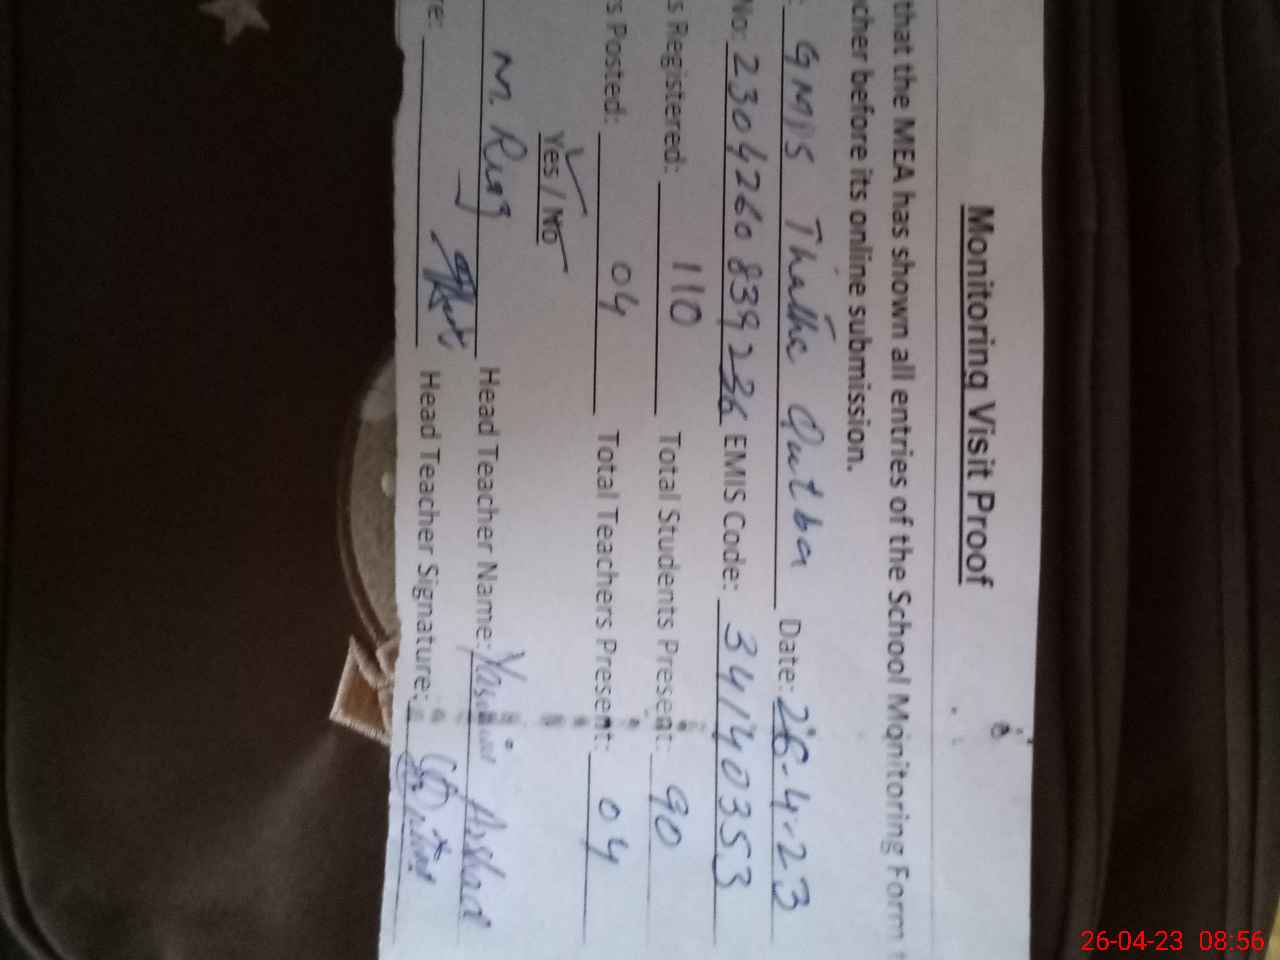 Monitoring Visit Proof
that the MEA has shown all entries of the School Monitoring Form t
cher before its online submission.
: GMPS Thatha Qutba Date: 26-4-23
No: 2304260839236 EMIS Code: 34140353
s Registered: 110 Total Students Present: 90
s Posted: 04 Total Teachers Present: 04
Yes / No
M. Riaz Head Teacher Name: Yasmin Arshad
re: Head Teacher Signature:
26-04-23 08:56